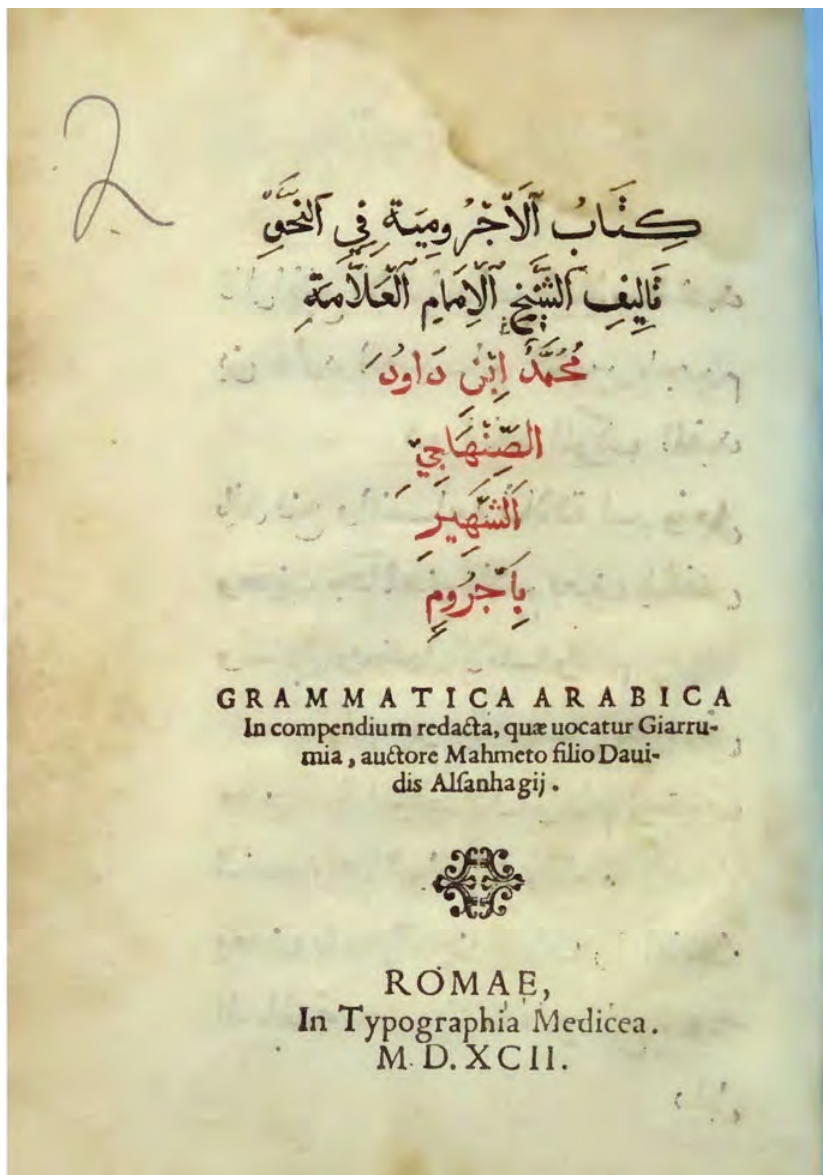 2
كِتَابُ ٱلْأَجْرُومِيَّةِ فِي ٱلنَّحْوِ
تَالِيفِ ٱلشَّيْخِ ٱلْإِمَامِ ٱلْعَلَّامَةِ
مُحَمَّدُ اِبْنِ دَاوُدَ
الصِّنْهَاجِيِّ
اَلشَّهِيرِ
بِآجَرُومِ
GRAMMATICA ARABICA
In compendium redacta, quæ uocatur Giarru-
mia, auctore Mahmeto filio Daui-
dis Alſanhagij.
ROMAE,
In Typographia Medicea.
M. D. XCII.